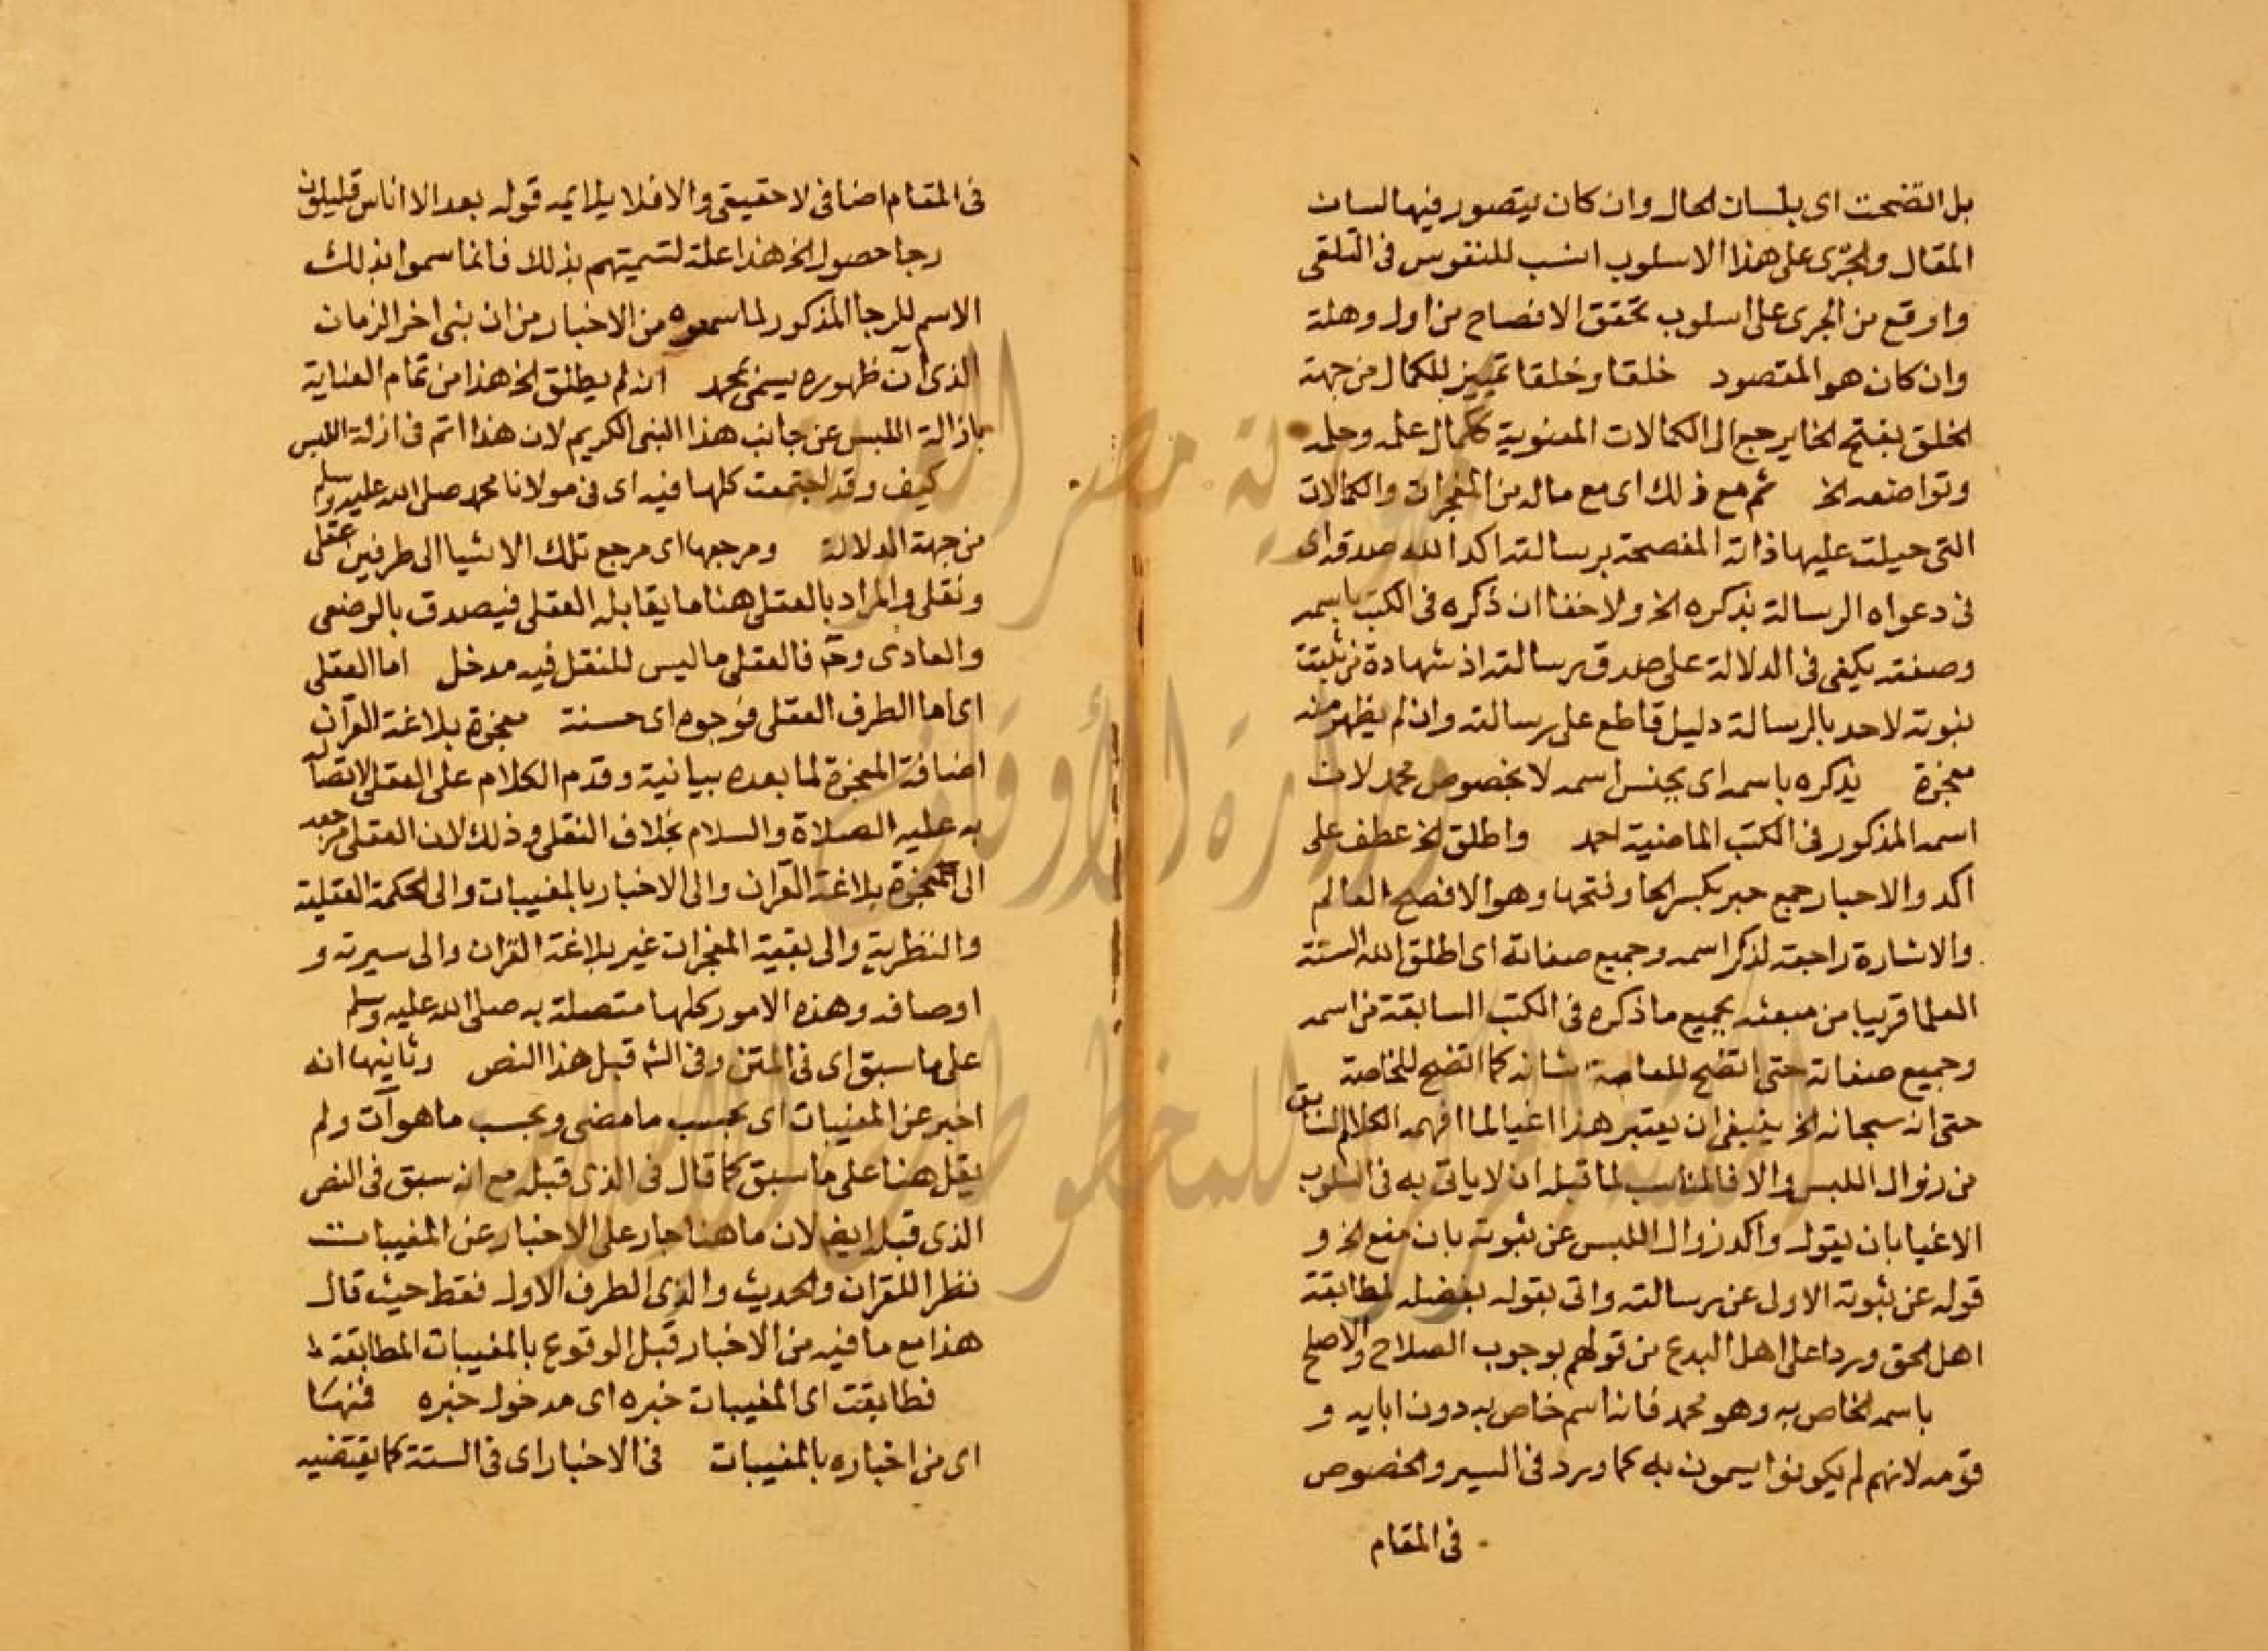 بل اتضحت اى بلسان الحال وان كان يتصور فيها لسان
المقال والجرى على هذا الاسلوب انسب للنفوس فى التلقى
واوقع من الجرى على اسلوب تحقق الافصاح من اول وهلة
وان كان هو المقصود خلقا وخلقا تمييز للكمال من جهة
الخلق بفتح الخا يرجع الى الكمالات المعنوية ككمال علمه وحلمه
وتواضعه الخ ثم مع ذلك اى مع ماله من المعجزات والكمالات
التى جبلت عليها ذاته المفصحة برسالته اكد الله صدقه اى
فى دعواه الرسالة بذكره الخ ولا خفا ان ذكره فى الكتب باسمه
وصفته يكفى فى الدلالة على صدق رسالته اذ شهادة من ثبتت
نبوته لاحد بالرسالة دليل قاطع على رسالته وان لم يظهر منه
معجزة بذكره باسمه اى بجنس اسمه لا بخصوص محمد لان
اسمه المذكور فى الكتب الماضية احمد واطلق الخ عطف على
اكد والاحبار جمع حبر بكسر الحا وفتحها وهو الافصح العالم
والاشارة راجعة لذكر اسمه وجميع صفاته اى اطلق الله السنة
العلما قريبا من مبعثه بجميع ما ذكره فى الكتب السابقة من اسمه
وجميع صفاته حتى اتضح للعامة شانه كما اتضح للخاصة
حتى انه سبحانه الخ ينبغى ان يعتبر هذا اغيا لما افهمه الكلام السابق
من زوال اللبس والا فالمناسب لما قبله ان لا ياتى به فى اسلوب
الاغيا بان يقول واكد زوال اللبس عن نبوته بان منع الخ و
قوله عن نبوته الاولى عن رسالته واتى بقوله بفضله لمطابقة
اهل الحق وردا على اهل البدع من قولهم بوجوب الصلاح والاصلح
باسمه الخاص به وهو محمد فانه اسم خاص به دون ابايه و
قومه لانهم لم يكونوا يسمون به كما ورد فى السير والخصوص
فى المقام
فى المقام اضافى لا حقيقى والا فلا يلايمه قوله بعد الا اناس قليلون
رجا حصول الخ هذا علة لتسميتهم بذلك فانما سموا بذلك
الاسم للرجا المذكور لما سمعوه من الاخبار من ان نبى اخر الزمان
الذى آن ظهوره يسمى بمحمد ان لم يطلق الخ هذا من تمام العناية
بازالة اللبس عن جانب هذا النبى الكريم لان هذا اتم فى ازلة اللبس
كيف وقد اجتمعت كلها فيه اى فى مولانا محمد صلى الله عليه وسلم
من جهة الدلالة ومرجعها اى مرجع تلك الاشيا الى طرفين عقلى
ونقلى والمراد بالعقلى هنا ما يقابل العقلى فيصدق بالوضعى
والعادى وح فالعقلى ما ليس للنقل فيه مدخل اما العقلى
اى اما الطرف العقلى فوجوه اى حسنة معجزة بلاغة القرآن
اضافة المعجزة لما بعده بيانية وقدم الكلام على العقلى لاتصاله
به عليه الصلاة والسلام بخلاف النقلى وذلك لان العقلى مرجعه
الى معجزة بلاغة القرآن والى الاخبار بالمغيبات والى الحكمة العقلية
والنظرية والى بقية المعجزات غير بلاغة القران والى سيرته و
اوصافه وهذه الامور كلها متصلة به صلى الله عليه وسلم
على ما سبق اى فى المتن وفى الشـ قبل هذا النص وثانيها انه
اخبر عن المغيبات اى بحسب ما مضى وبحسب ما هو آت ولم
يقل هنا على ما سبق كما قال فى الذى قبله مع انه سبق فى النص
الذى قبله ايضا لان ما هنا جار على الاخبار عن المغيبات
نظرا للقران والحديث والذى الطرف الاول فقط حيث قال
هذا مع ما فيه من الاخبار قبل الوقوع بالمغيبات المطابقة
فطابقت اى المغيبات خبره اى مدخول خبره فمنها
اى من اخباره بالمغيبات فى الاخبار اى فى السنة كما يقتضيه